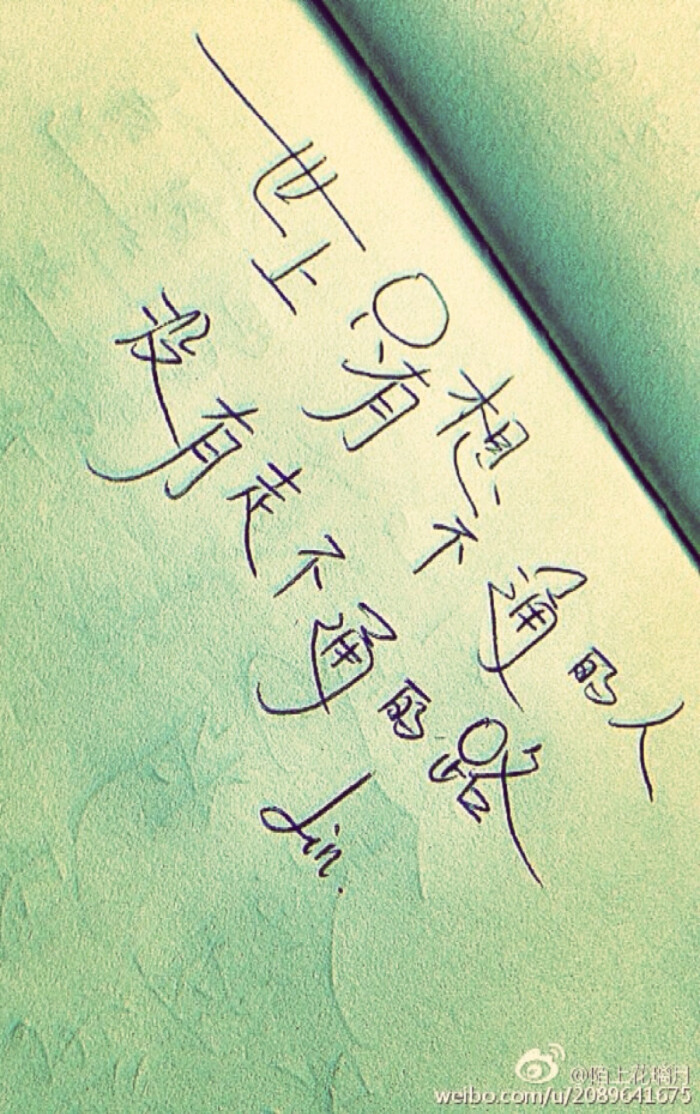 世上只有想不通的人
没有走不通的路
Jin.
@陌上花璃月
weibo.com/u/2089641675